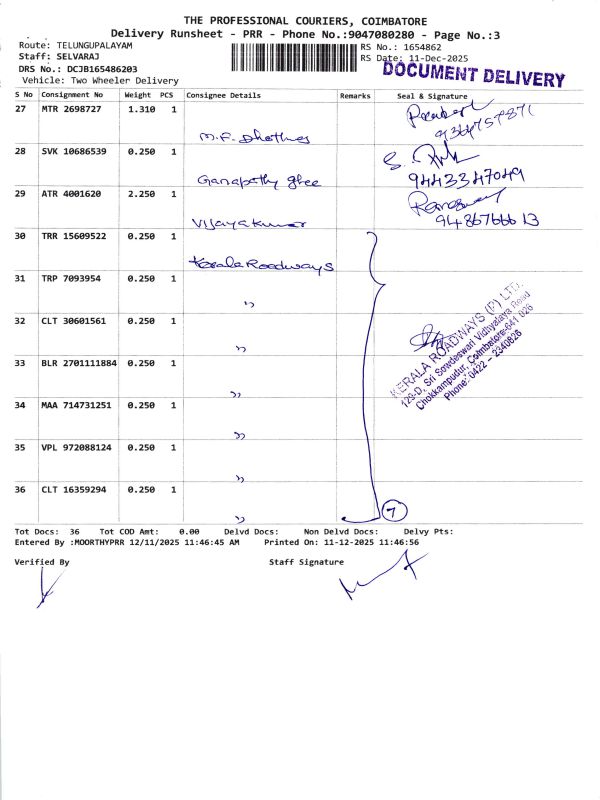 THE PROFESSIONAL COURIERS, COIMBATORE
Delivery Runsheet - PRR - Phone No.:9047080280 - Page No.:3
Route: TELUNGUPALAYAM RS No.: 1654862
Staff: SELVARAJ RS Date: 11-Dec-2025
DRS No.: DCJB165486203 DOCUMENT DELIVERY
Vehicle: Two Wheeler Delivery
S No Consignment No Weight PCS Consignee Details Remarks Seal & Signature
27 MTR 2698727 1.310 1
M.F. Dhothies
28 SVK 10686539 0.250 1
Ganapathy ghee 9443347049
29 ATR 4001620 2.250 1
Vijayakumar
30 TRR 15609522 0.250 1
Kerala Roadways
31 TRP 7093954 0.250 1
"
32 CLT 30601561 0.250 1
"
KERALA ROADWAYS (P) LTD.
129-D, Sri Sowdeswari Vidhyalaya Road
Chokkampudur, Coimbatore-641 026
Phone: 0422 - 2340826
33 BLR 2701111884 0.250 1
"
34 MAA 714731251 0.250 1
"
35 VPL 972088124 0.250 1
"
36 CLT 16359294 0.250 1
" 7
Tot Docs: 36 Tot COD Amt: 0.00 Delvd Docs: Non Delvd Docs: Delvy Pts:
Entered By :MOORTHYPRR 12/11/2025 11:46:45 AM Printed On: 11-12-2025 11:46:56
Verified By Staff Signature